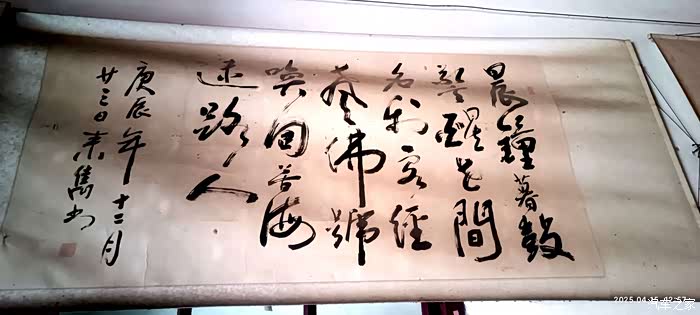 晨鐘暮鼓
警醒世間
名利客經
聲佛號
喚回苦海
迷路人
庚辰年十二月
廿三日
2025.04.15
汽车之家